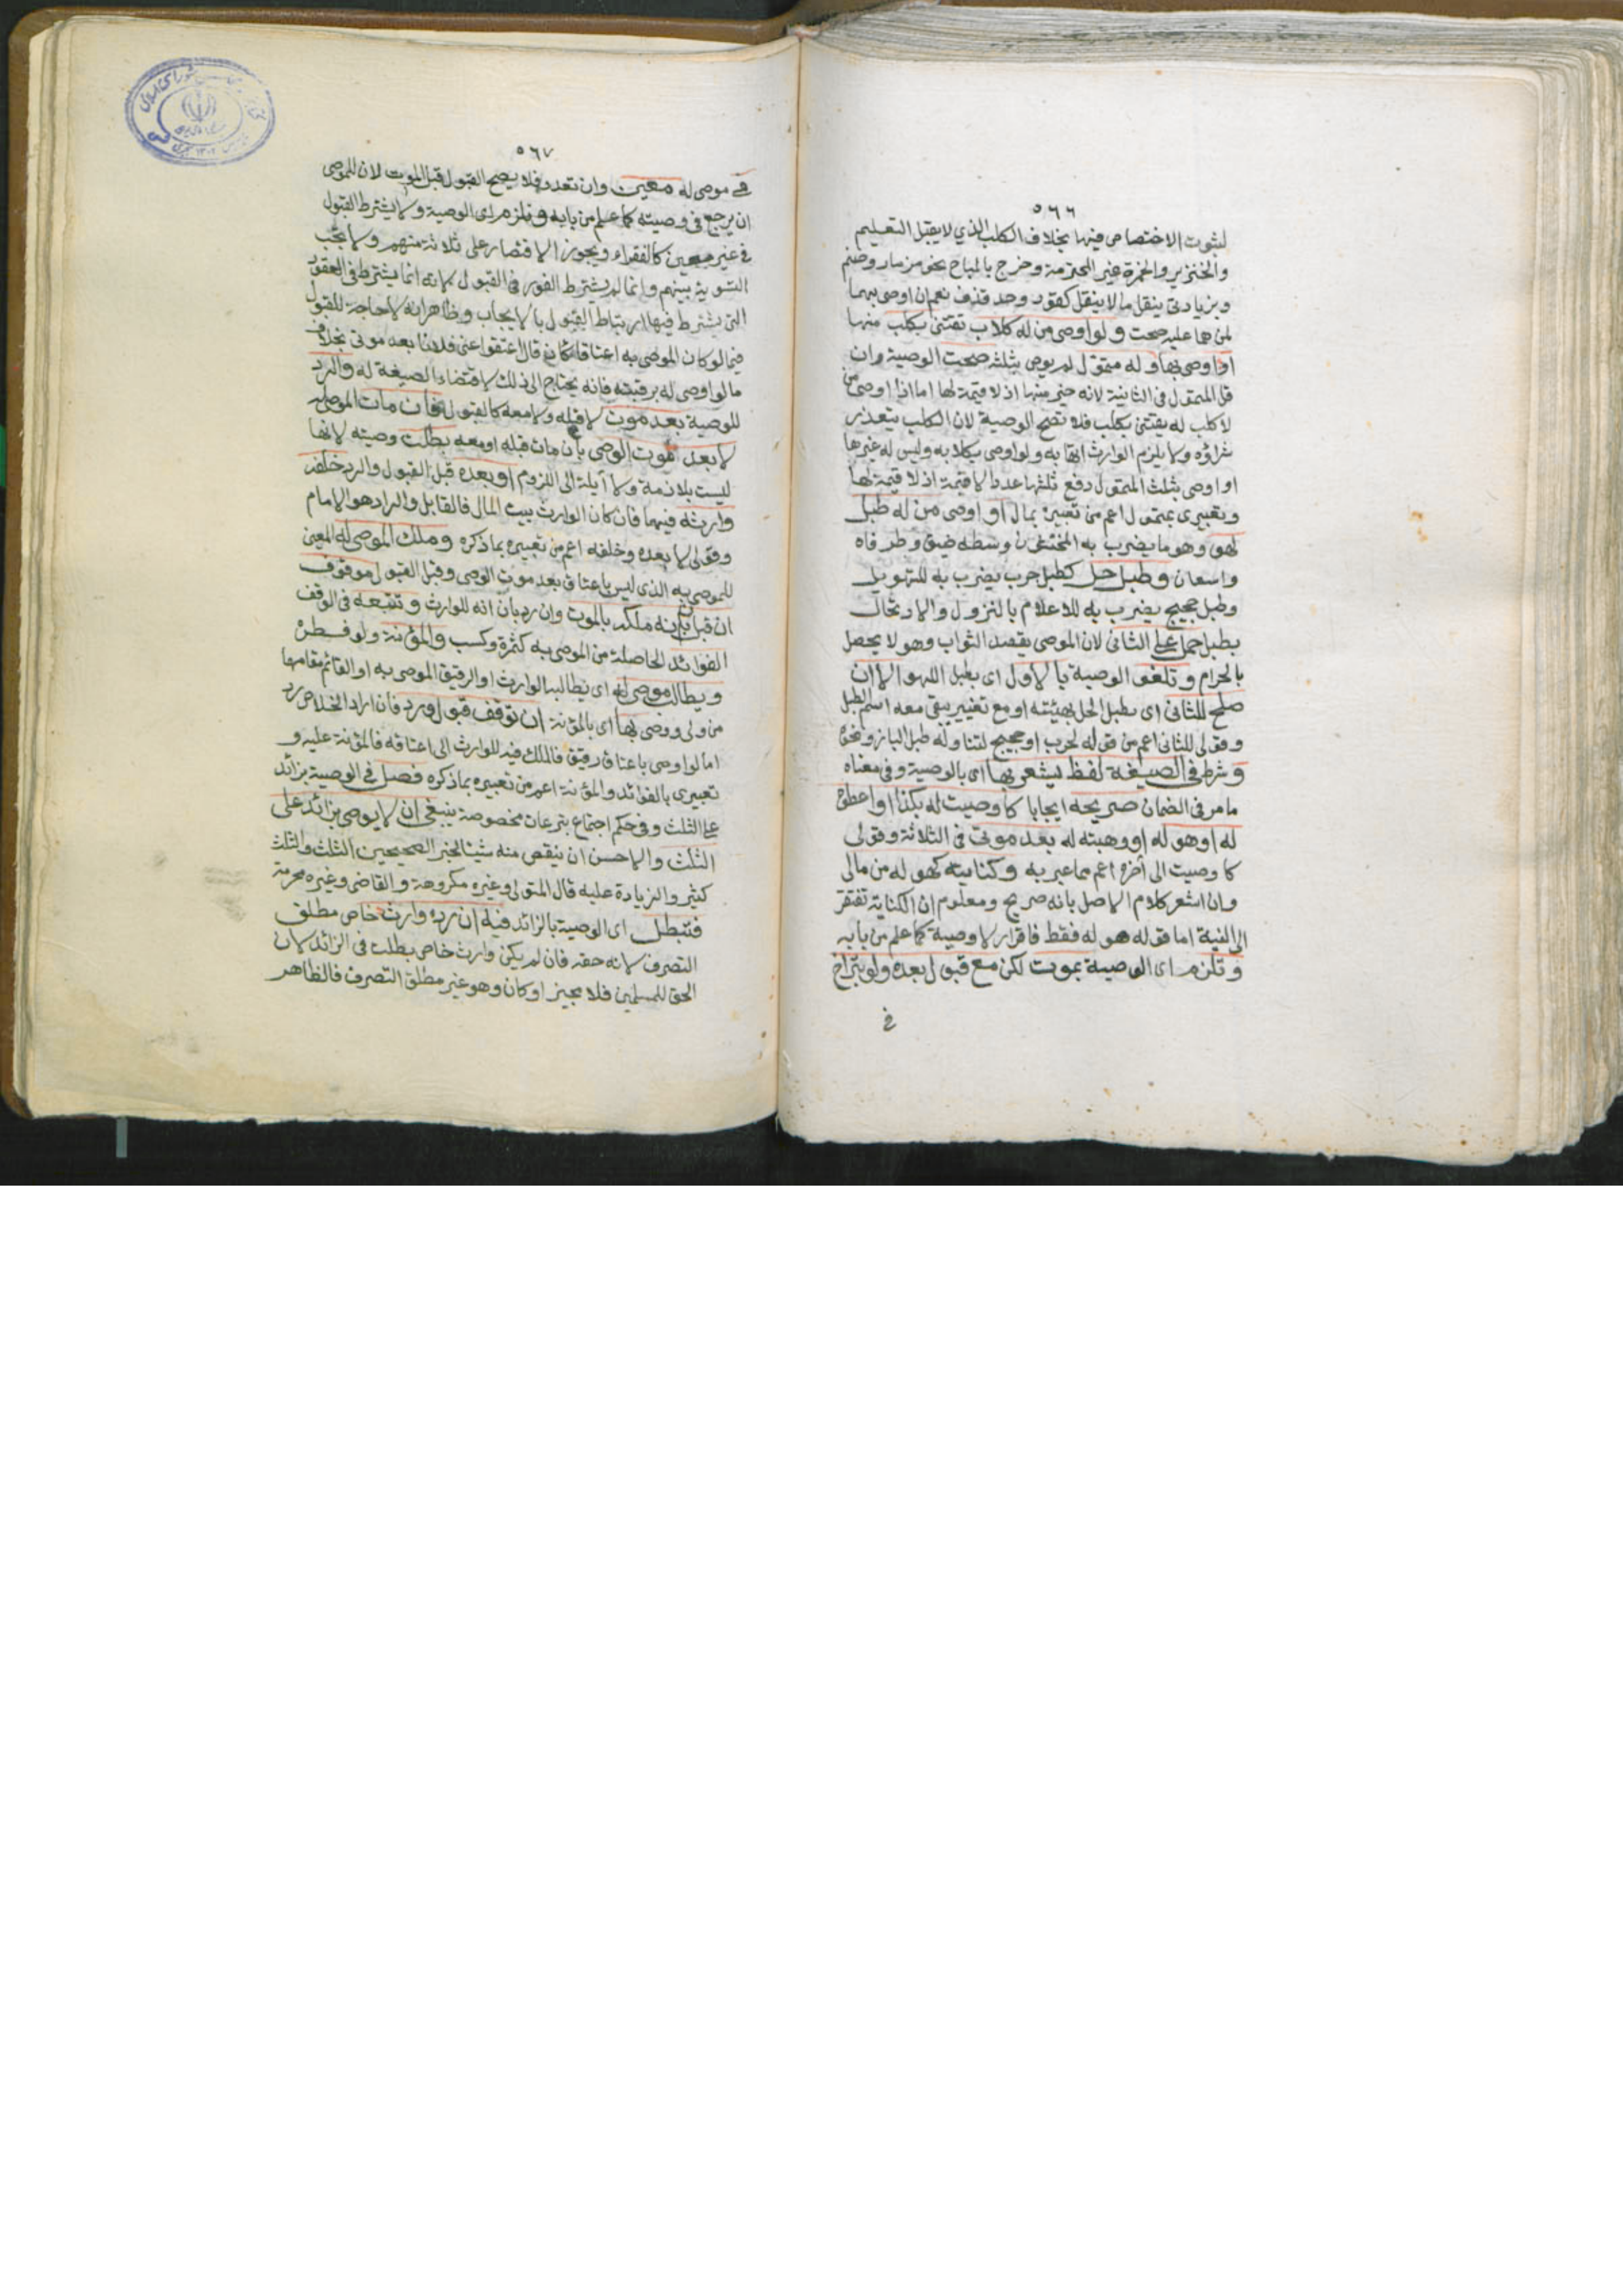 ٥٦٦
لثبوت الاختصاص فيها بخلاف الكلب الذي لا يقبل التعليم
والخنزير والخمرة غير المحترمة وخرج بالمباح نحو مزمار وصنم
وبزيادتي ينقل ما لا ينقل كقود وحد قذف نعم ان اوصى بهما
لمن هما عليه صحت ولو اوصى من له كلاب تقتنى بكلب منها
او اوصى بها وله متمول لم يوص بثلثه صحت الوصية وان
قل المتمول في الثانية لانه خير منها اذ لا قيمة لها اما اذا اوصى من
لا كلب له يقتنى بكلب فلا تصح الوصية لان الكلب يتعذر
شراؤه ولا يلزم الوارث اتهابه ولو اوصى بكلابه وليس له غيرها
او اوصى بثلث المتمول دفع ثلثها عددا لا قيمة اذ لا قيمة لها
وتعبيرى بمتمول اعم من تعبيره بمال او اوصى من له طبل
لهو وهو ما يضرب به المخنثون وسطه ضيق وطرفاه
واسعان وطبل حل كطبل حرب يضرب به للتهويل
وطبل حجيج يضرب به للاعلام بالنزول والارتحال
بطبل حمل على الثاني لان الموصى يقصد الثواب وهو لا يحصل
بالحرام وتلغو الوصية بالاول اى بطبل اللهو الا ان
صلح للثاني اى بطبل الحل بهيئته او مع تغيير يبقى معه اسم الطبل
وقولى للثاني اعم من قوله لحرب او حجيج لتناوله طبل الباز ونحوه
وشرط في الصيغة لفظ يشعر بها اى بالوصية وفى معناه
ما مر فى الضمان صريحه ايجابا كاوصيت له بكذا او اعطوه
له او هو له او وهبته له بعد موتى فى الثلاثة وقولى
كاوصيت الى آخره اعم مما عبر به وكنايته كهو له من مالى
وان اشعر كلام الاصل بانه صريح ومعلوم ان الكناية تفتقر
الى النية اما قوله هو له فقط فاقرار لا وصية كما علم من بابه
وتلزم اى الوصية بموت لكن مع قبول بعده ولو بتراخ
في
٥٦٧
في موصى له معين وان تعدد فلا يصح القبول قبل الموت لان للموصى
ان يرجع فى وصيته كما علم من بابه وتلزم اى الوصية ولا يشترط القبول
فى غير معين كالفقراء ويجوز الاقتصار على ثلاثة منهم ولا يجب
التسوية بينهم وانما لم يشترط الفور فى القبول لانه انما يشترط فى العقود
التى يشترط فيها ارتباط القبول بالايجاب وظاهر انه لا حاجة للقبول
فيما لو كان الموصى به اعتاقا كان قال اعتقوا عنى فلانا بعد موتى بخلاف
ما لو اوصى له برقبته فانه يحتاج الى ذلك لاقتضاء الصيغة له والرد
للوصية بعد موت لا قبله ولا معه كالقبول فان مات الموصى له
لا بعد موت الموصى بان مات قبله او معه بطلت وصيته لانها
ليست بلازمة ولا آيلة الى اللزوم او بعده قبل القبول والرد خلفه
وارثه فيهما فان كان الوارث بيت المال فالقابل والراد هو الامام
وقولى لا بعده وخلفه اعم من تعبيره بما ذكره وملك الموصى له المعين
للموصى به الذى ليس باعتاق بعد موت الموصى وقبل القبول موقوف
ان قبل بان انه ملكه بالموت وان رد بان انه للوارث وتتبعه فى الوقف
الفوائد الحاصلة من الموصى به كثمرة وكسب والمؤنة ولو فطرة
ويطالب موصى له اى يطالبه الوارث او الرقيق الموصى به او القائم مقامهما
من ولى ووصى بها اى بالمؤنة ان توقف قبول ورد فان اراد الخلاص رد
اما لو اوصى باعتاق رقيق فالملك فيه للوارث الى اعتاقه فالمؤنة عليه و
تعبيرى بالفوائد والمؤنة اعم من تعبيره بما ذكره فصل فى الوصية بزائد
على الثلث وفى حكم اجتماع تبرعات مخصوصة ينبغى ان لا يوصى بزائد على
الثلث والاحسن ان ينقص منه شيئا لخبر الصحيحين الثلث والثلث
كثير والزيادة عليه قال المتولى وغيره مكروهة والقاضى وغيره محرمة
فتبطل اى الوصية بالزائد فيه ان رده وارث خاص مطلق
التصرف لانه حقه فان لم يكن وارث خاص بطلت فى الزائد لان
الحق للمسلمين فلا مجيز او كان وهو غير مطلق التصرف فالظاهر